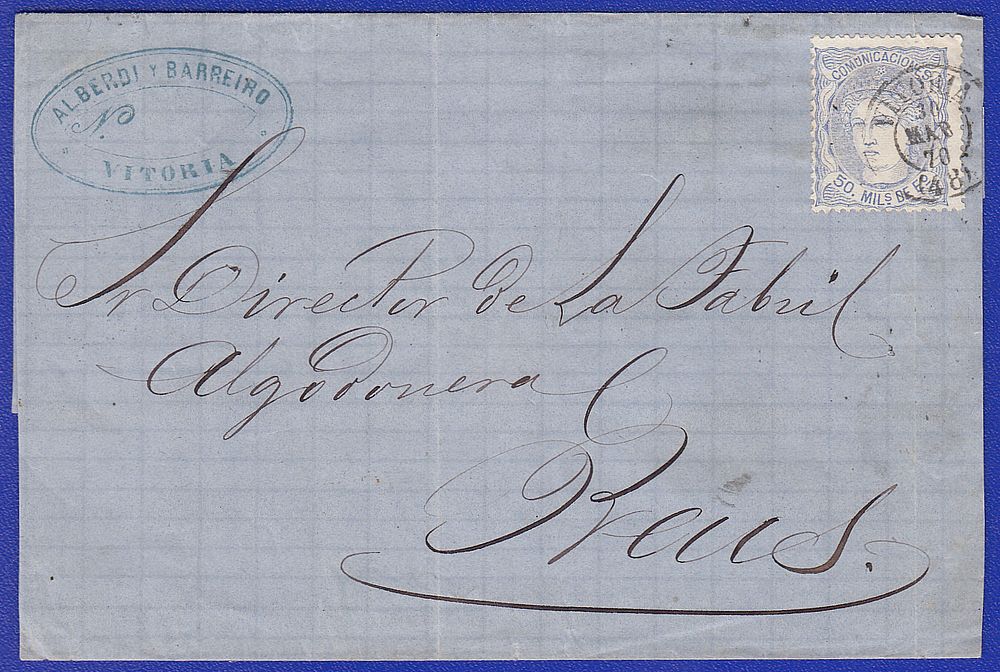 ALBERDI Y BARREIRO
N.
VITORIA
COMUNICACIONES
50. MILS DE E
VITORIA
30
MAR
70
(48)
Sr Director de La Fabril
Algodonera
Reus.